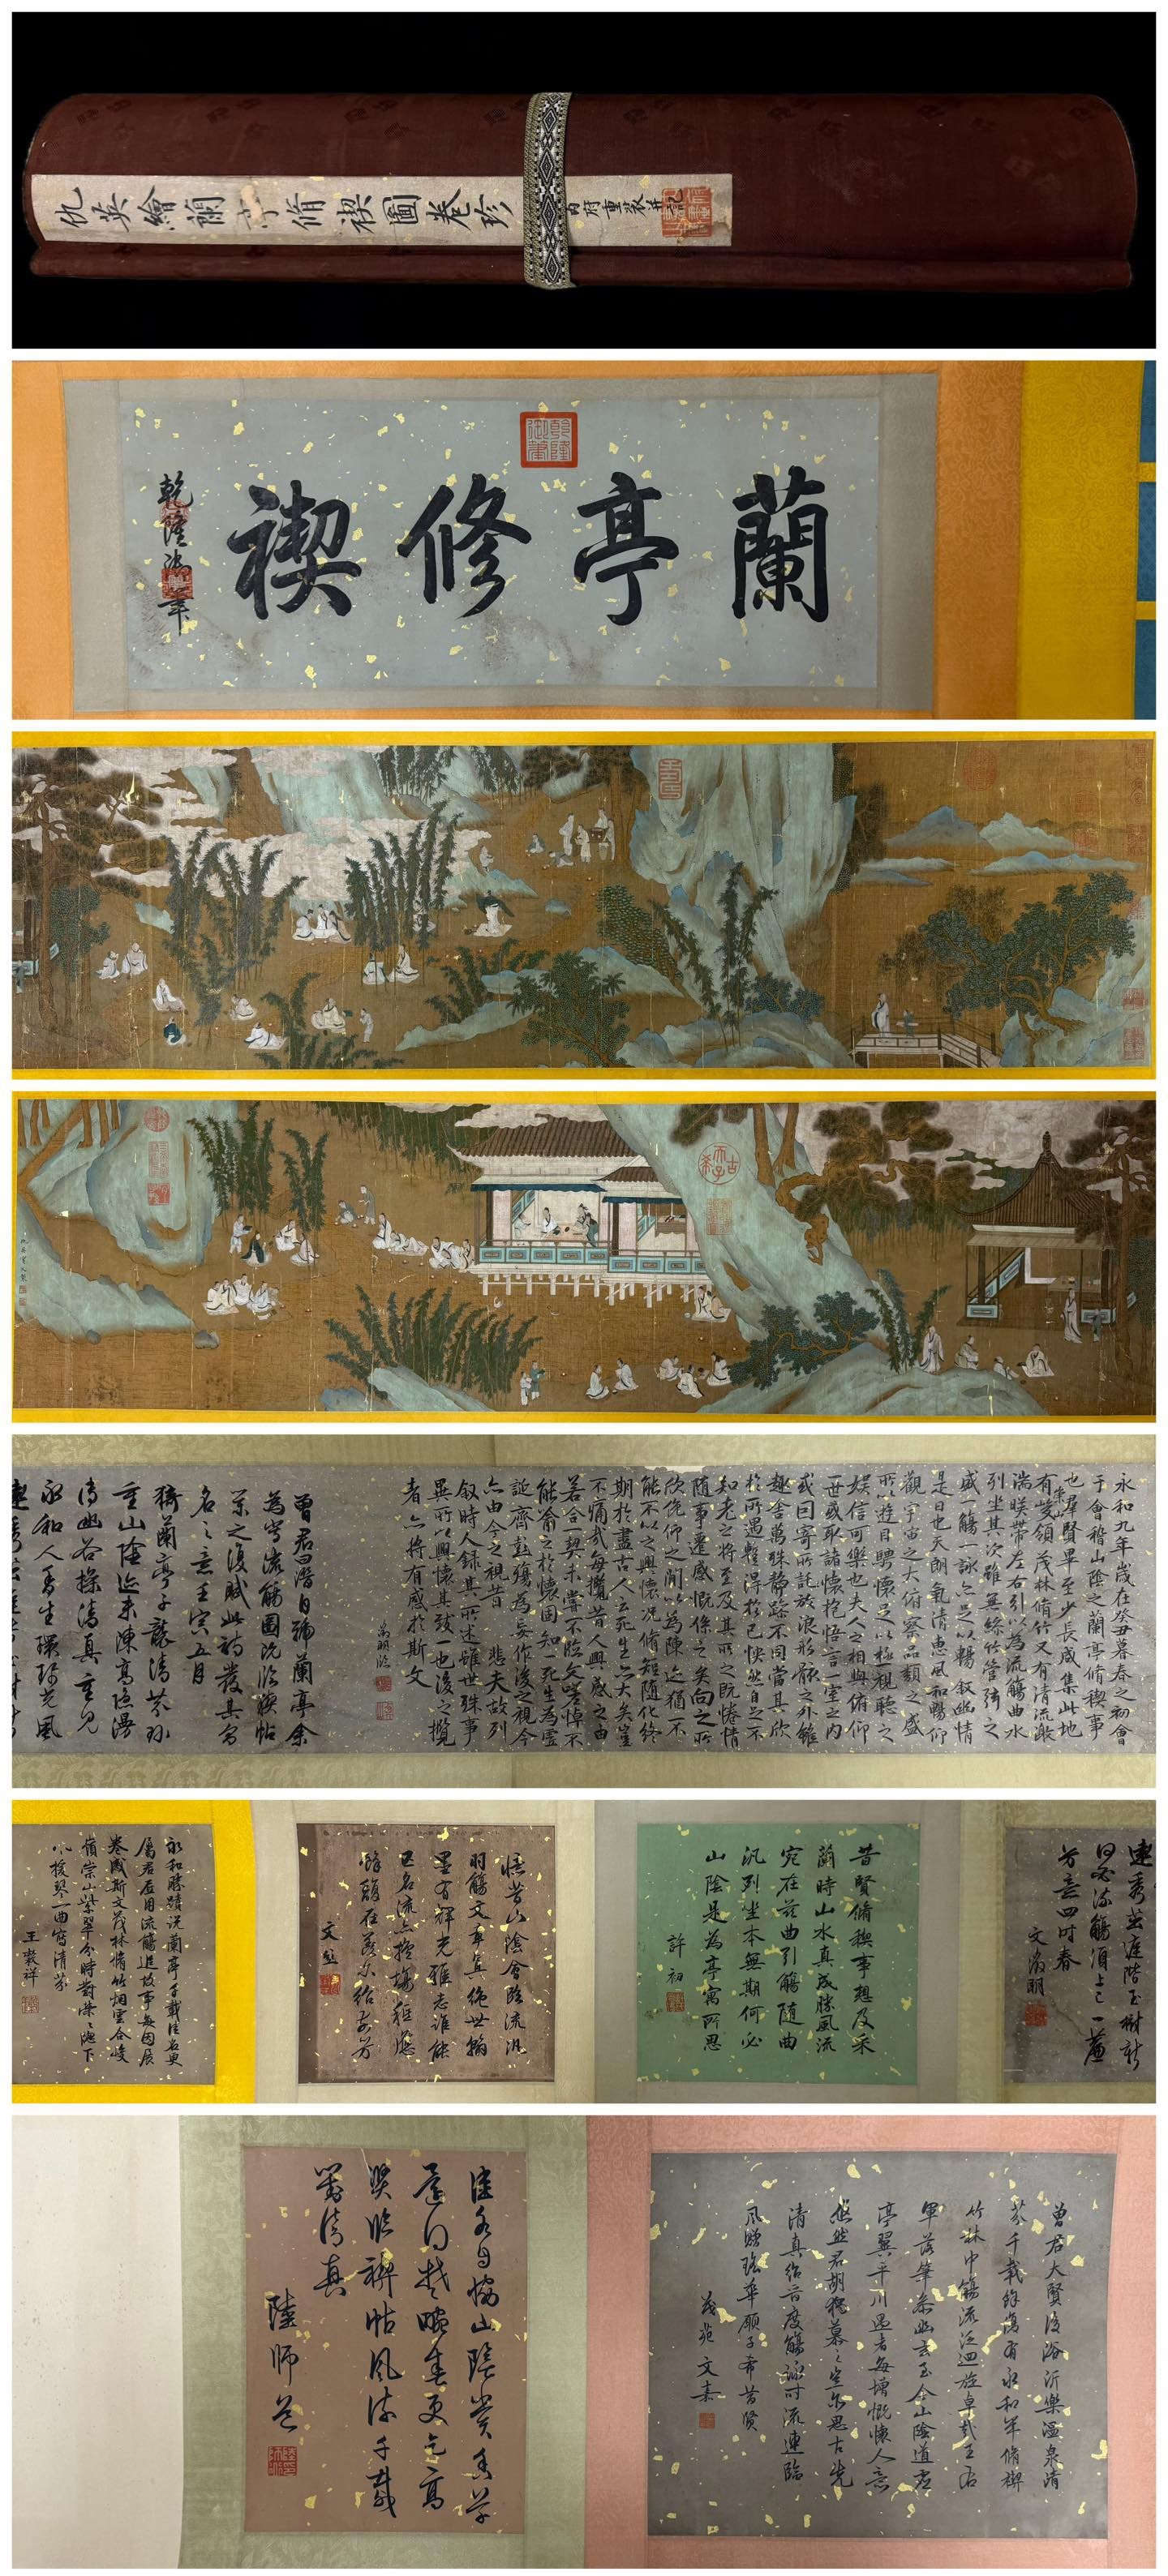 仇英繪蘭亭脩禊圖卷珍
內府重裝并記
蘭亭修禊
乾隆御筆
乾隆御筆
古希天子
永和九年歲在癸丑暮春之初會
于會稽山陰之蘭亭脩稧事
也羣賢畢至少長咸集此地
有崇山峻領茂林脩竹又有清流激
湍暎帶左右引以為流觴曲水
列坐其次雖無絲竹管弦之
盛一觴一詠亦足以暢叙幽情
是日也天朗氣清惠風和暢仰
觀宇宙之大俯察品類之盛
所以遊目騁懷足以極視聽之
娛信可樂也夫人之相與俯仰
一世或取諸懷抱悟言一室之內
或因寄所託放浪形骸之外雖
趣舍萬殊靜躁不同當其欣
於所遇蹔得於己快然自足不
知老之將至及其所之既惓情
隨事遷感慨係之矣向之所
欣俛仰之間以為陳迹猶不
能不以之興懷況脩短隨化終
期於盡古人云死生亦大矣豈
不痛哉每攬昔人興感之由
若合一契未嘗不臨文嗟悼不
能喻之於懷固知一死生為虛
誕齊彭殤為妄作後之視今
亦由今之視昔 悲夫故列
叙時人錄其所述雖世殊事
異所以興懷其致一也後之攬
者亦將有感於斯文
徵明臨
曾君曰潛自號蘭亭余
為寫流觴圖既臨禊帖
繫之復賦此詩發其
名之意壬寅五月
猗蘭亭子襲清芬
重山陰迹未陳高隱漫
傳幽谷操清真重見
永和人香生環珮光風
遠秀茁庭階玉樹新
何必流觴須上巳一簾
芳意四時春
文徵明
昔賢脩稧事想及采
蘭時山水真成勝風流
宛在茲曲引觴隨曲
汎列坐本無期何必
山陰是為亭寓所思
許初
悟昔山陰會臨流汎
羽觴文章真絕世翰
墨有輝光雅志誰能
文彭
永和勝蹟說蘭亭千載佳名更
屬君應用流觴追故事每因展
卷感斯文茂林脩竹烟雲合峻
嶺崇山紫翠分時對榮榮階下
小援琴一曲寫清芬
王榖祥
曾君大賢後浴沂樂溫泉清
芬千載餘復有永和年脩禊
竹林中觴流泛迴旋卓哉王右
軍落筆參幽玄至今山陰道君
亭翼平川過者每增慨懷人意
悠然君胡獨慕之望尔思古先
清真紹晉度觴詠時流連臨
風贈瑤華願子希昔賢
茂苑文嘉
陸師道